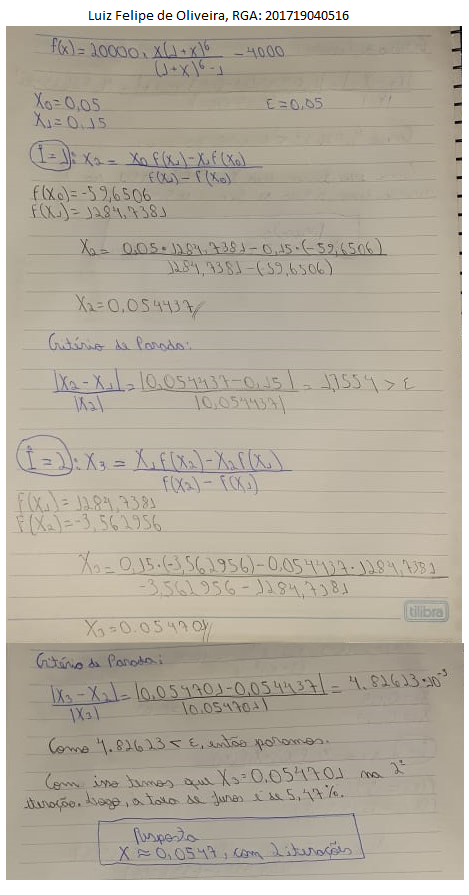 Luiz Felipe de Oliveira, RGA: 201719040516
f(x) = 20000 . x(1+x)^6 / (1+x)^6 - 1 - 4000
X0 = 0,05 ε = 0,05
X1 = 0,15
i = 1 : X2 = X0 f(X1) - X1 f(X0) / f(X1) - f(X0)
f(X0) = -59,6506
f(X1) = 1284,7381
X2 = 0,05 · 1284,7381 - 0,15 · (-59,6506) / 1284,7381 - (-59,6506)
X2 = 0,054437 //
Critério de Parada:
|X2 - X1| / |X2| = |0,054437 - 0,15| / |0,054437| = 1,7554 > ε
i = 2 : X3 = X1 f(X2) - X2 f(X1) / f(X2) - f(X1)
f(X1) = 1284,7381
f(X2) = -3,562956
X3 = 0,15 · (-3,562956) - 0,054437 · 1284,7381 / -3,562956 - 1284,7381
X3 = 0.054701 //
tilibra
Critério de Parada:
|X3 - X2| / |X3| = |0,054701 - 0,054437| / |0.054701| = 4.82623 · 10^-3
Como 4.82623 < ε, então paramos.
Com isso temos que X3 = 0,054701 na 2ª
iteração. Logo, a taxa de juros é de 5,47%.
Resposta
X ≈ 0,0547, com 2 iterações